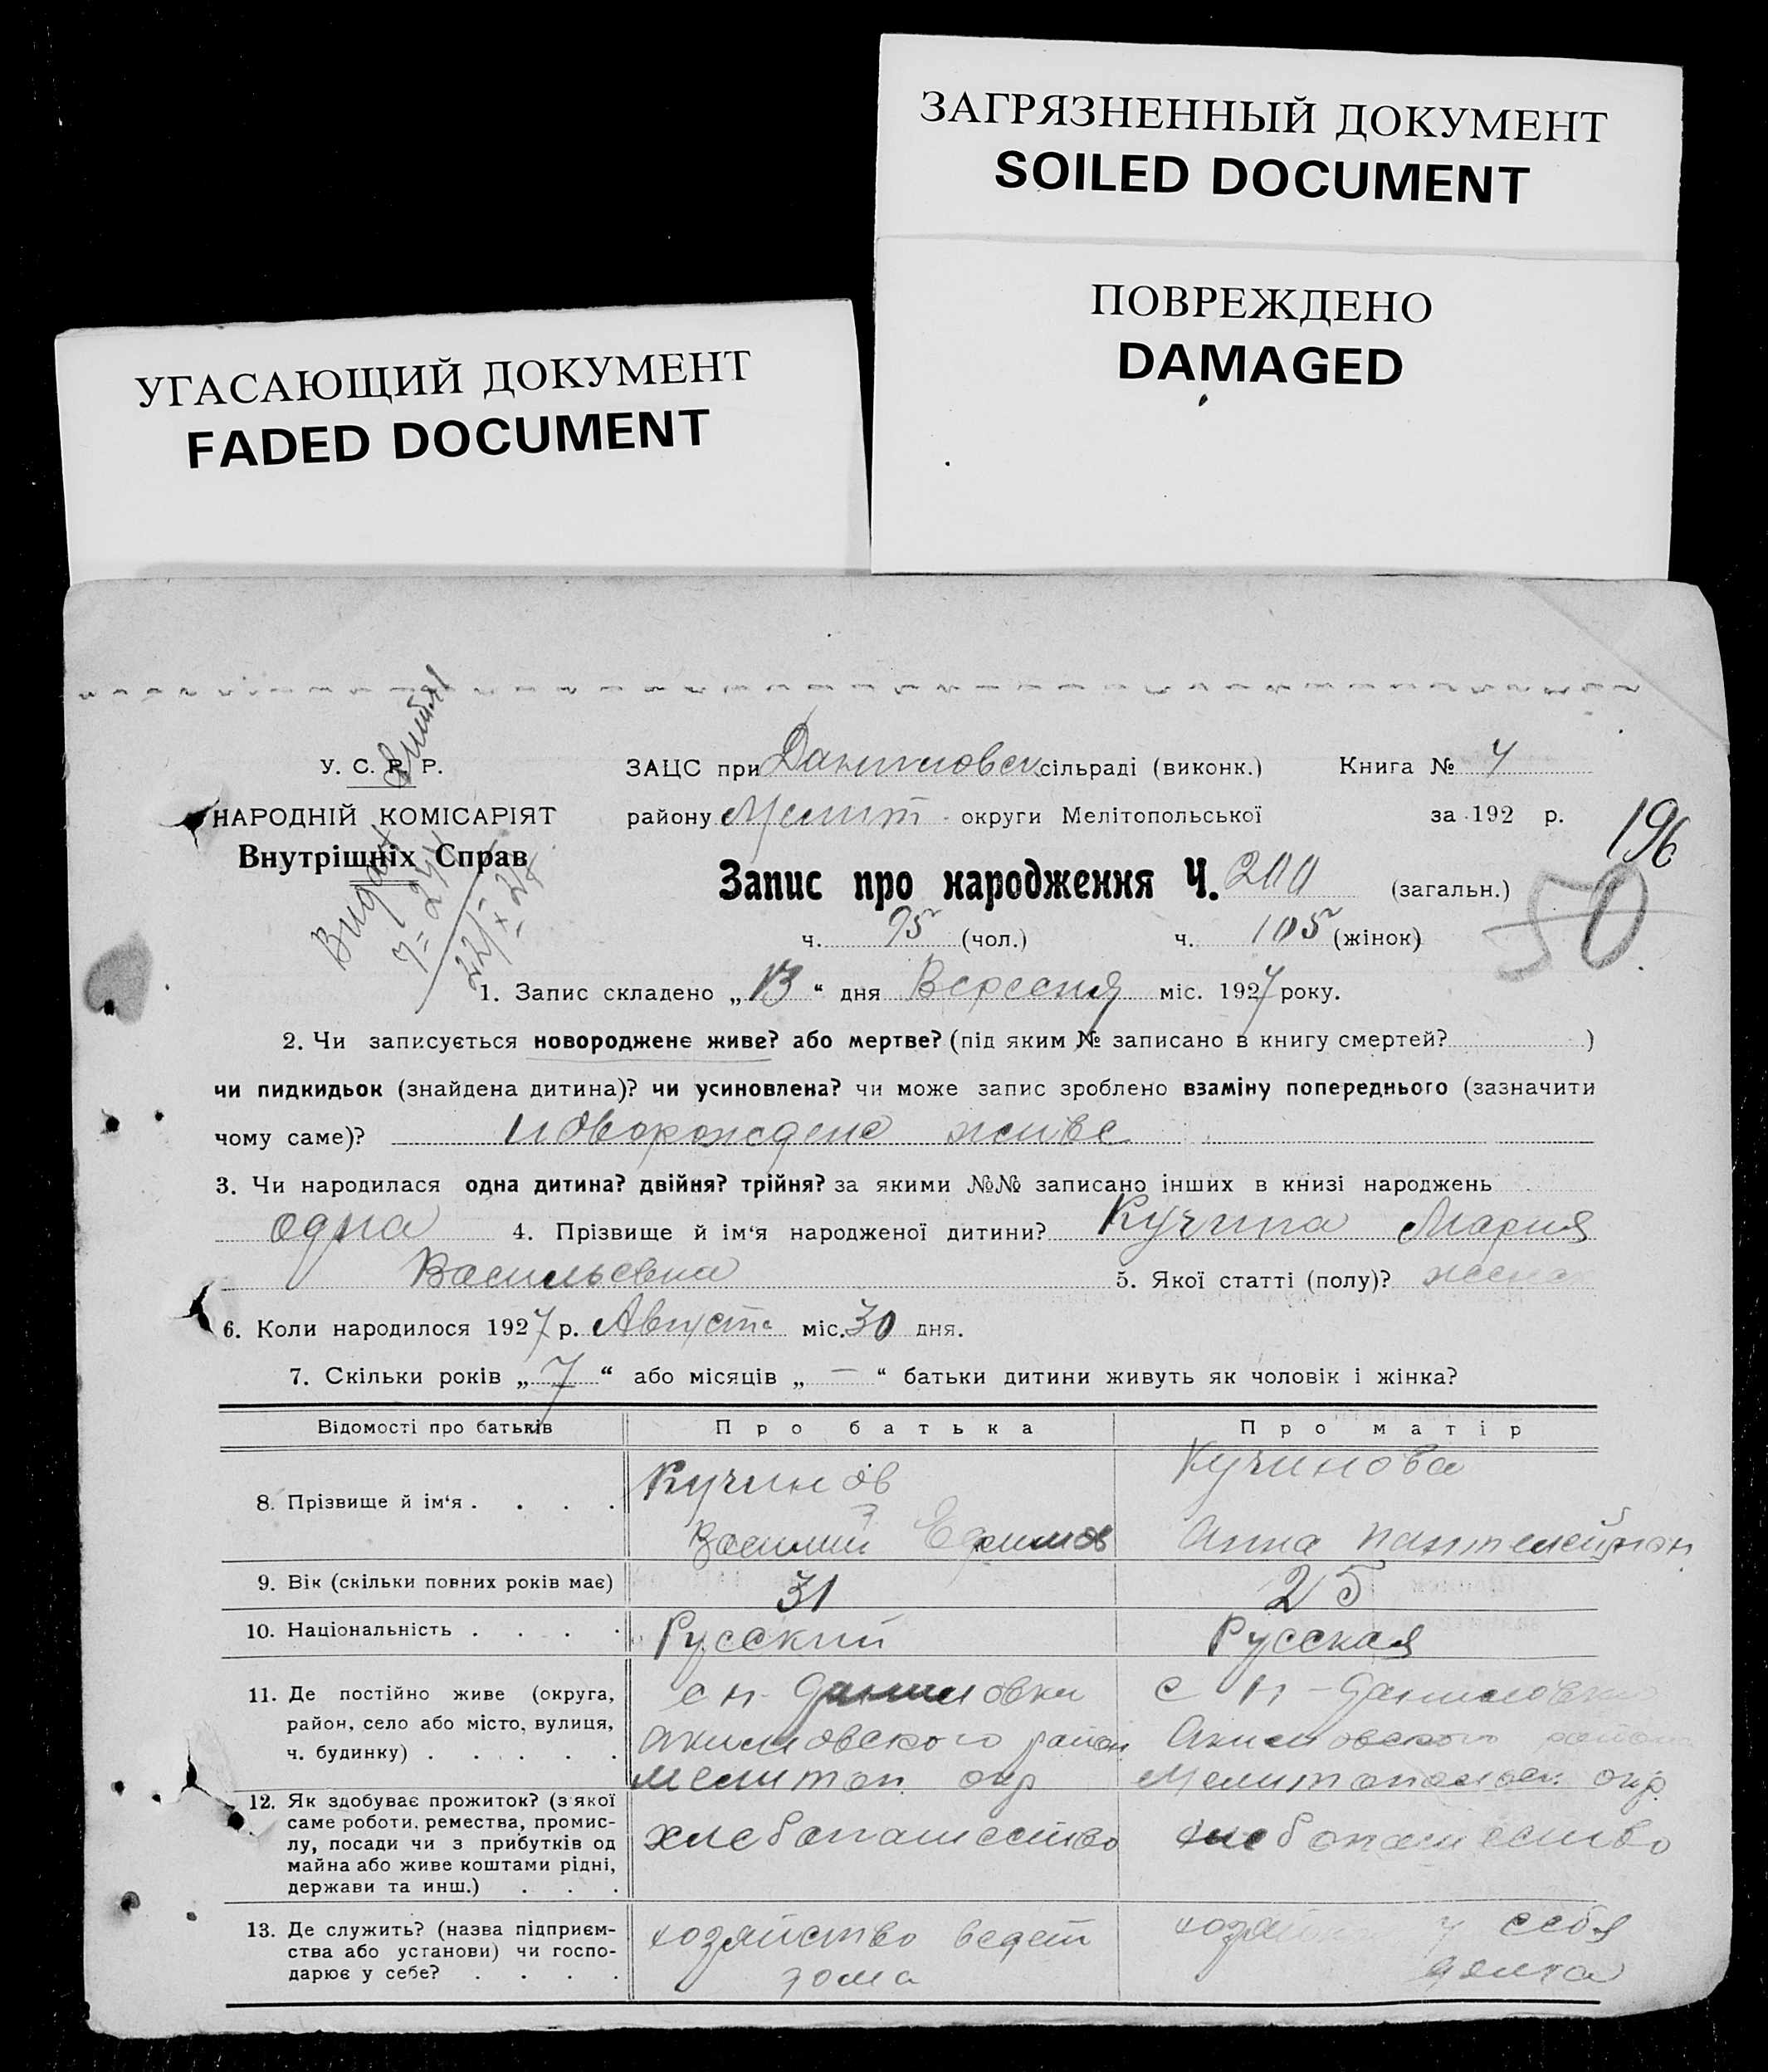 ЗАГРЯЗНЕННЫЙ ДОКУМЕНТ
SOILED DOCUMENT
ПОВРЕЖДЕНО
DAMAGED
УГАСАЮЩИЙ ДОКУМЕНТ
FADED DOCUMENT
У. С. Р. Р.
НАРОДНІЙ КОМІСАРІЯТ
Внутрішніх Справ
ЗАЦС при Даниловск сільраді (виконк.) Книга №
району Мелит округи Мелітопольської за 192 р.
196
Запис про народження Ч. 200 (загальн.)
50
ч. 95 (чол.) ч. 105 (жінок)
1. Запис складено „13“ дня Вересня міс. 1927 року.
2. Чи записується новороджене живе? або мертве? (під яким № записано в книгу смертей? )
чи пидкидьок (знайдена дитина)? чи усиновлена? чи може запис зроблено взаміну попереднього (зазначити
чому саме)? новорождене живе
3. Чи народилася одна дитина? двійня? трійня? за якими №№ записано інших в книзі народжень
одна 4. Прізвище й ім‘я народженої дитини? Кучина Мария
Васильевна 5. Якої статті (полу)?
6. Коли народилося 1927 р. Августа міс. 30 дня.
7. Скільки років „7“ або місяців „—“ батьки дитини живуть як чоловік і жінка?
Відомості про батьків Про батька Про матір
8. Прізвище й ім‘я . . . . Кучинов Кучинова
Василий Ефимов Анна Пантелеймон
9. Вік (скільки повних років має) 31 25
10. Національність . . . . Русский Русская
11. Де постійно живе (округа, с н-Даниловки с н-Даниловки
район, село або місто, вулиця, Акимовского район Акимовского района
ч. будинку) . . . . . Мелитоп. окр Мелитопольск. окр.
12. Як здобуває прожиток? (з якої
саме роботи, ремества, промис-
лу, посади чи з прибутків од хлебопашество хлебопашество
майна або живе коштами рідні,
держави та инш.) . . .
13. Де служить? (назва підприєм- хозяйство ведет у себя
ства або установи) чи госпо-
дарює у себе? . . . . дома